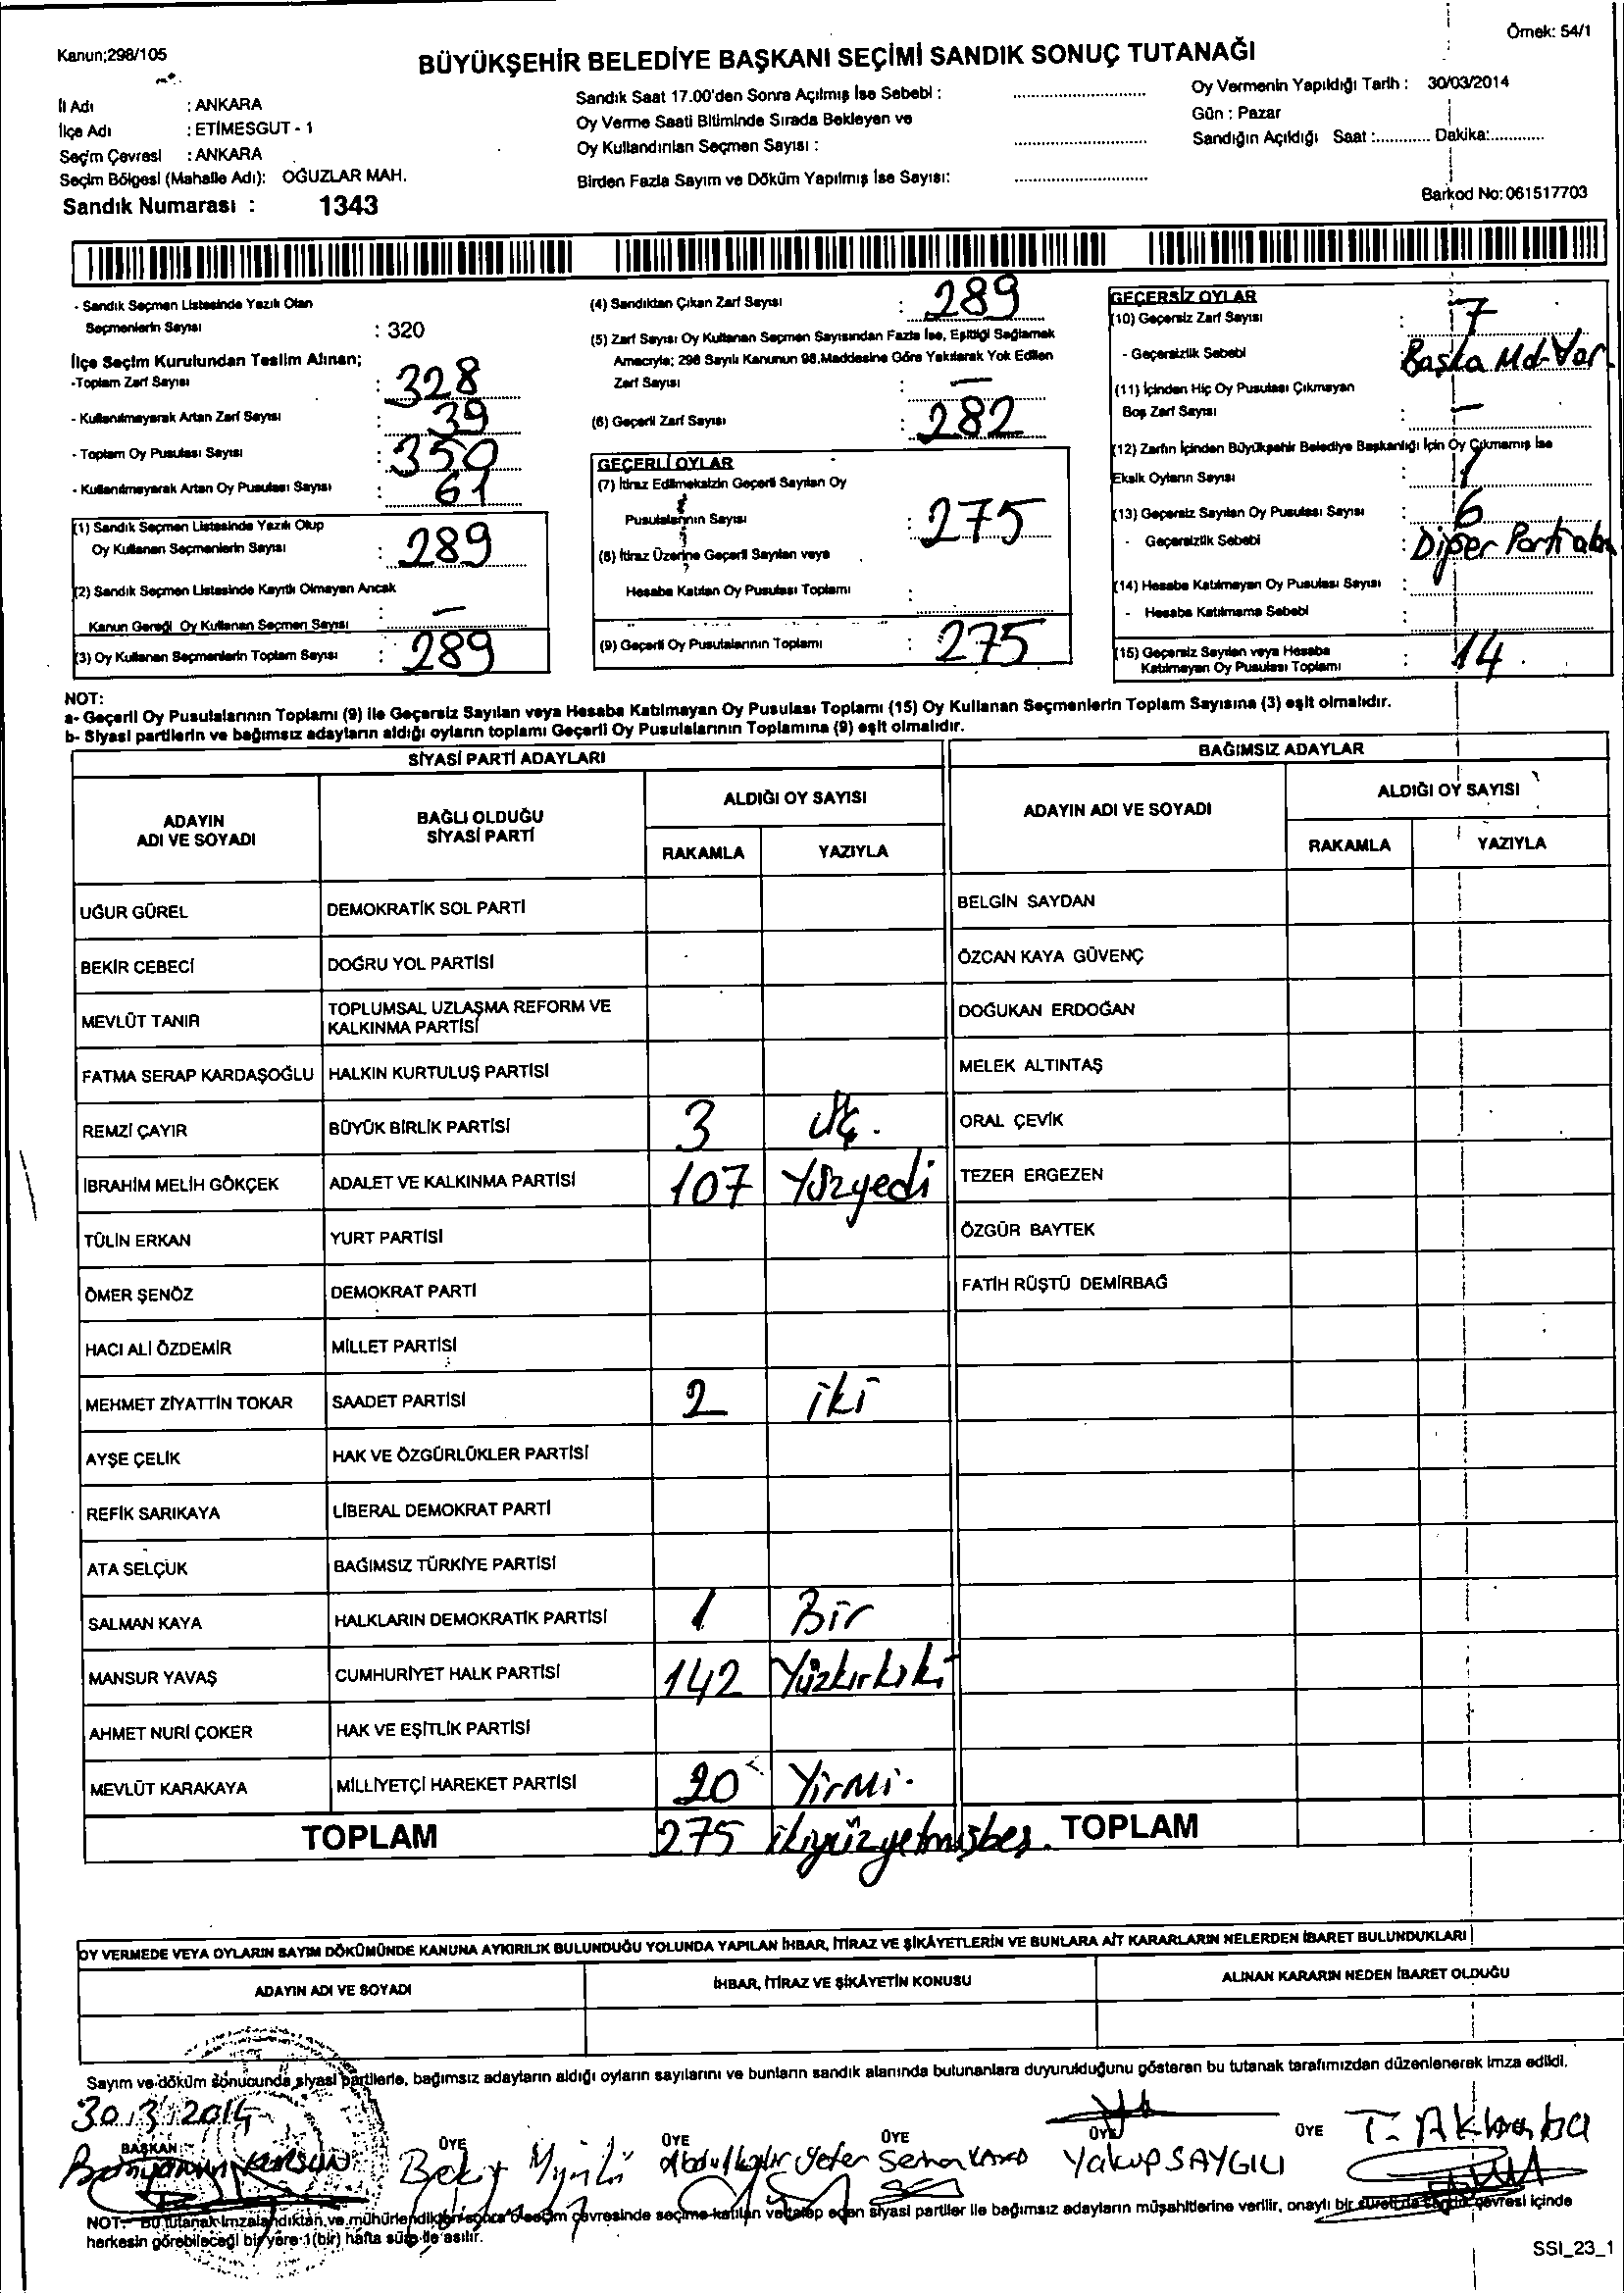 Örnek: 54/1
Kanun;298/105
BÜYÜKŞEHİR BELEDİYE BAŞKANI SEÇİMİ SANDIK SONUÇ TUTANAĞI
İl Adı : ANKARA
İlçe Adı : ETİMESGUT - 1
Seçim Çevresi : ANKARA
Seçim Bölgesi (Mahalle Adı): OĞUZLAR MAH.
Sandık Numarası : 1343
Sandık Saat 17.00'den Sonra Açılmış İse Sebebi :
Oy Verme Saati Bitiminde Sırada Bekleyen ve
Oy Kullandırılan Seçmen Sayısı :
Birden Fazla Sayım ve Döküm Yapılmış İse Sayısı:
Oy Vermenin Yapıldığı Tarih : 30/03/2014
Gün : Pazar
Sandığın Açıldığı Saat :............ Dakika:............
Barkod No: 061517703
- Sandık Seçmen Listesinde Yazılı Olan
Seçmenlerin Sayısı : 320
İlçe Seçim Kurulundan Teslim Alınan;
-Toplam Zarf Sayısı : 328
- Kullanılmayarak Artan Zarf Sayısı : 39
- Toplam Oy Pusulası Sayısı : 350
- Kullanılmayarak Artan Oy Pusulası Sayısı : 61
(1) Sandık Seçmen Listesinde Yazılı Olup
Oy Kullanan Seçmenlerin Sayısı : 289
(2) Sandık Seçmen Listesinde Kayıtlı Olmayan Ancak
Kanun Gereği Oy Kullanan Seçmen Sayısı : —
(3) Oy Kullanan Seçmenlerin Toplam Sayısı : 289
(4) Sandıktan Çıkan Zarf Sayısı : 289
(5) Zarf Sayısı Oy Kullanan Seçmen Sayısından Fazla İse, Eşitliği Sağlamak
Amacıyla; 298 Sayılı Kanunun 98.Maddesine Göre Yakılarak Yok Edilen
Zarf Sayısı : —
(6) Geçerli Zarf Sayısı : 282
GEÇERLİ OYLAR
(7) İtiraz Edilmeksizin Geçerli Sayılan Oy
Pusulalarının Sayısı : 275
(8) İtiraz Üzerine Geçerli Sayılan veya
Hesaba Katılan Oy Pusulası Toplamı :
(9) Geçerli Oy Pusulalarının Toplamı : 275
GEÇERSİZ OYLAR
(10) Geçersiz Zarf Sayısı : 7
- Geçersizlik Sebebi : Başka Md. Var
(11) İçinden Hiç Oy Pusulası Çıkmayan
Boş Zarf Sayısı : —
(12) Zarfın İçinden Büyükşehir Belediye Başkanlığı İçin Oy Çıkmamış İse
Eksik Oyların Sayısı : 1
(13) Geçersiz Sayılan Oy Pusulası Sayısı : 6
- Geçersizlik Sebebi : Diğer Parti
(14) Hesaba Katılmayan Oy Pusulası Sayısı :
- Hesaba Katılmama Sebebi :
(15) Geçersiz Sayılan veya Hesaba
Katılmayan Oy Pusulası Toplamı : 14
NOT:
a- Geçerli Oy Pusulalarının Toplamı (9) ile Geçersiz Sayılan veya Hesaba Katılmayan Oy Pusulası Toplamı (15) Oy Kullanan Seçmenlerin Toplam Sayısına (3) eşit olmalıdır.
b- Siyasi partilerin ve bağımsız adayların aldığı oyların toplamı Geçerli Oy Pusulalarının Toplamına (9) eşit olmalıdır.
SİYASİ PARTİ ADAYLARI
ADAYIN ADI VE SOYADI
BAĞLI OLDUĞU SİYASİ PARTİ
ALDIĞI OY SAYISI
RAKAMLA YAZIYLA
UĞUR GÜREL DEMOKRATİK SOL PARTİ
BEKİR CEBECİ DOĞRU YOL PARTİSİ
MEVLÜT TANIR TOPLUMSAL UZLAŞMA REFORM VE KALKINMA PARTİSİ
FATMA SERAP KARDAŞOĞLU HALKIN KURTULUŞ PARTİSİ
REMZİ ÇAYIR BÜYÜK BİRLİK PARTİSİ 3 Üç.
İBRAHİM MELİH GÖKÇEK ADALET VE KALKINMA PARTİSİ 107 Yüzyedi
TÜLİN ERKAN YURT PARTİSİ
ÖMER ŞENÖZ DEMOKRAT PARTİ
HACI ALİ ÖZDEMİR MİLLET PARTİSİ
MEHMET ZİYATTİN TOKAR SAADET PARTİSİ 2 iki
AYŞE ÇELİK HAK VE ÖZGÜRLÜKLER PARTİSİ
REFİK SARIKAYA LİBERAL DEMOKRAT PARTİ
ATA SELÇUK BAĞIMSIZ TÜRKİYE PARTİSİ
SALMAN KAYA HALKLARIN DEMOKRATİK PARTİSİ 1 Bir
MANSUR YAVAŞ CUMHURİYET HALK PARTİSİ 142 Yüzkırkiki
AHMET NURİ ÇOKER HAK VE EŞİTLİK PARTİSİ
MEVLÜT KARAKAYA MİLLİYETÇİ HAREKET PARTİSİ 20 Yirmi.
TOPLAM 275 ikiyüzyetmişbeş.
BAĞIMSIZ ADAYLAR
ADAYIN ADI VE SOYADI
ALDIĞI OY SAYISI
RAKAMLA YAZIYLA
BELGİN SAYDAN
ÖZCAN KAYA GÜVENÇ
DOĞUKAN ERDOĞAN
MELEK ALTINTAŞ
ORAL ÇEVİK
TEZER ERGEZEN
ÖZGÜR BAYTEK
FATİH RÜŞTÜ DEMİRBAĞ
TOPLAM
OY VERMEDE VEYA OYLARIN SAYIM DÖKÜMÜNDE KANUNA AYKIRILIK BULUNDUĞU YOLUNDA YAPILAN İHBAR, İTİRAZ VE ŞİKÂYETLERİN VE BUNLARA AİT KARARLARIN NELERDEN İBARET BULUNDUKLARI
ADAYIN ADI VE SOYADI İHBAR, İTİRAZ VE ŞİKÂYETİN KONUSU ALINAN KARARIN NEDEN İBARET OLDUĞU
Sayım ve döküm sonucunda siyasi partilerle, bağımsız adayların aldığı oyların sayılarını ve bunların sandık alanında bulunanlara duyurulduğunu gösteren bu tutanak tarafımızdan düzenlenerek imza edildi.
30.3.2014
BAŞKAN ÜYE ÜYE ÜYE ÜYE ÜYE
Bekir Abdulkadir Yeter Yakup SAYGILI T. Akbaba
NOT: Bu tutanak imzalandıktan ve mühürlendikten sonra o seçim çevresinde seçime katılan ve talep eden siyasi partiler ile bağımsız adayların müşahitlerine verilir, onaylı bir sureti de sandık çevresi içinde
herkesin görebileceği bir yere 1(bir) hafta süre ile asılır.
SSI_23_1